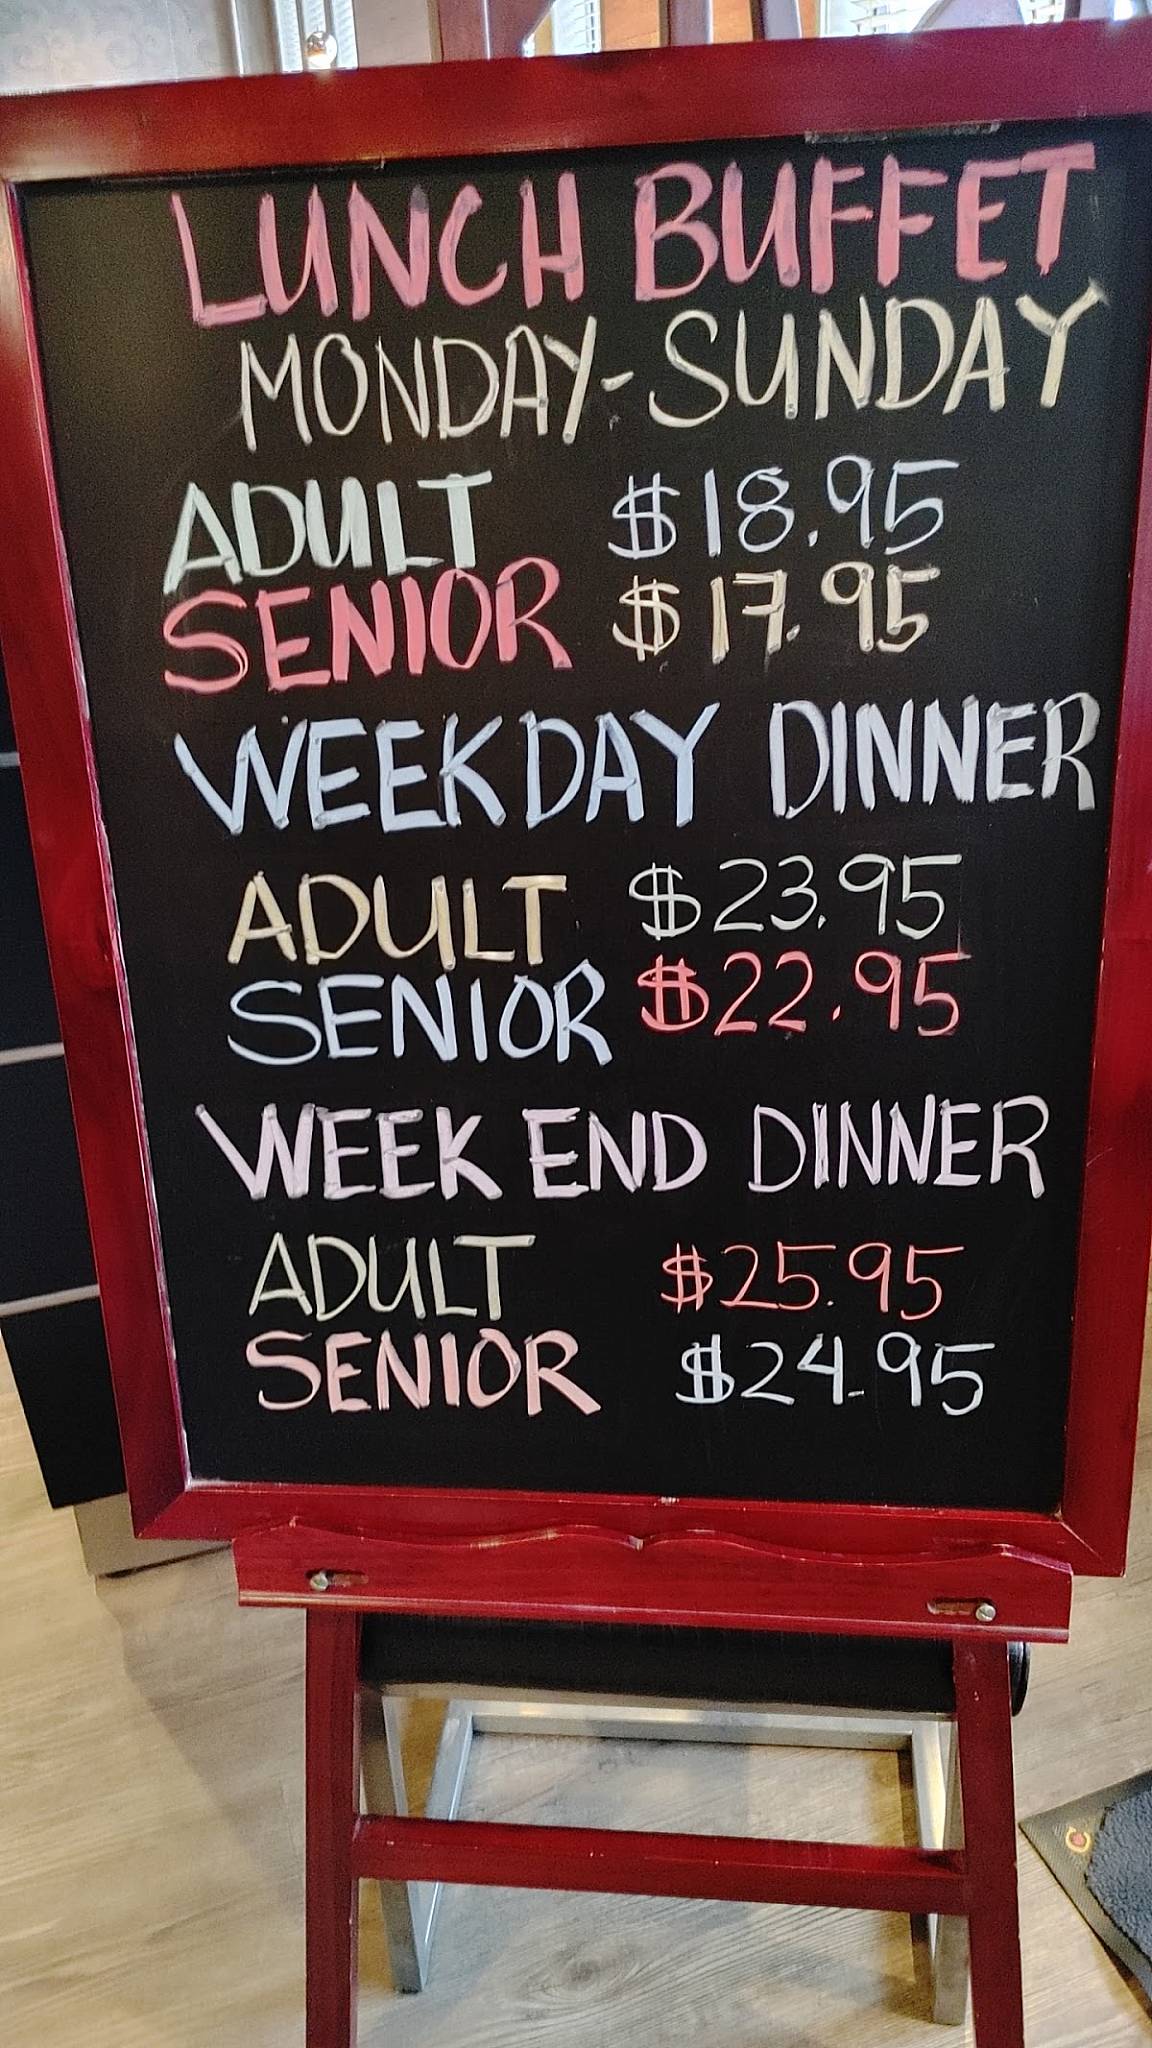 LUNCH BUFFET
MONDAY-SUNDAY
ADULT $18.95
SENIOR $17.95
WEEKDAY DINNER
ADULT $23.95
SENIOR $22.95
WEEK END DINNER
ADULT $25.95
SENIOR $24.95